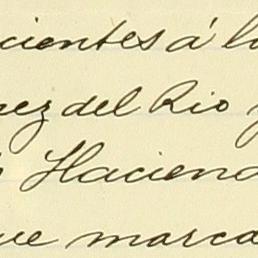 cientes á lo
nez del Rio y
Hacien
que marca